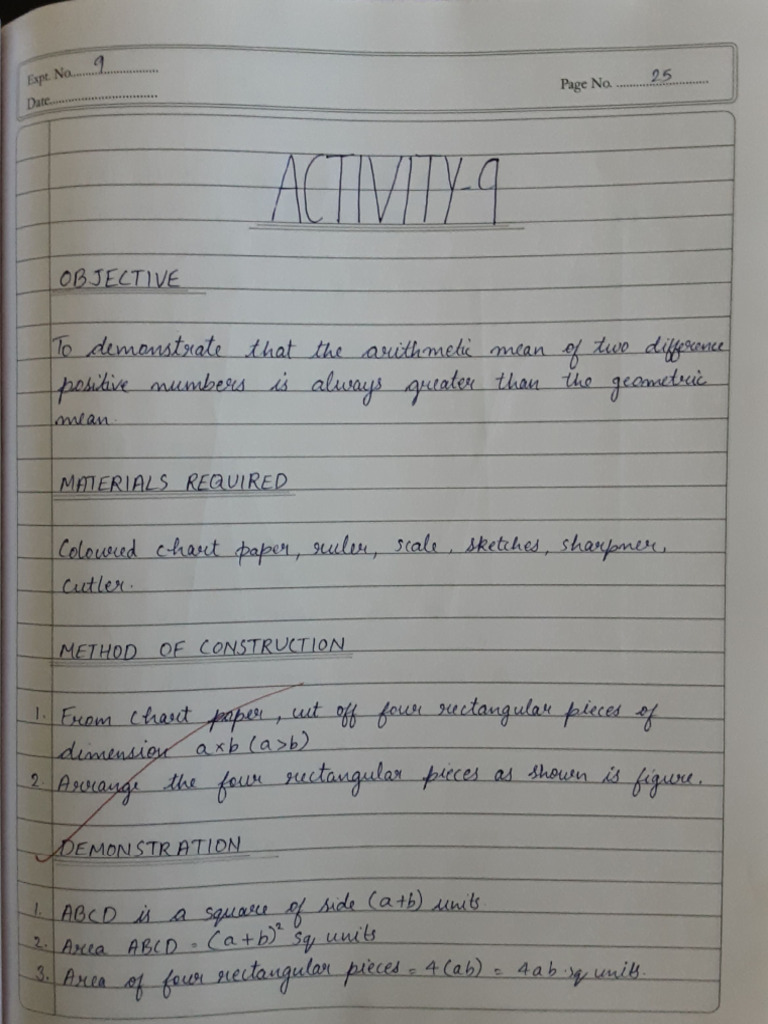 Expt. No. 9
Date
Page No. 25
ACTIVITY-9
OBJECTIVE
To demonstrate that the arithmetic mean of two difference
positive numbers is always greater than the geometric
mean.
MATERIALS REQUIRED
Coloured chart paper, ruler, scale, sketches, sharpner,
cutler.
METHOD OF CONSTRUCTION
1. From chart paper, cut off four rectangular pieces of
dimension a×b (a>b)
2. Arrange the four rectangular pieces as shown is figure.
DEMONSTRATION
1. ABCD is a square of side (a+b) units.
2. Area ABCD = (a+b)² sq units
3. Area of four rectangular pieces = 4(ab) = 4ab sq units.